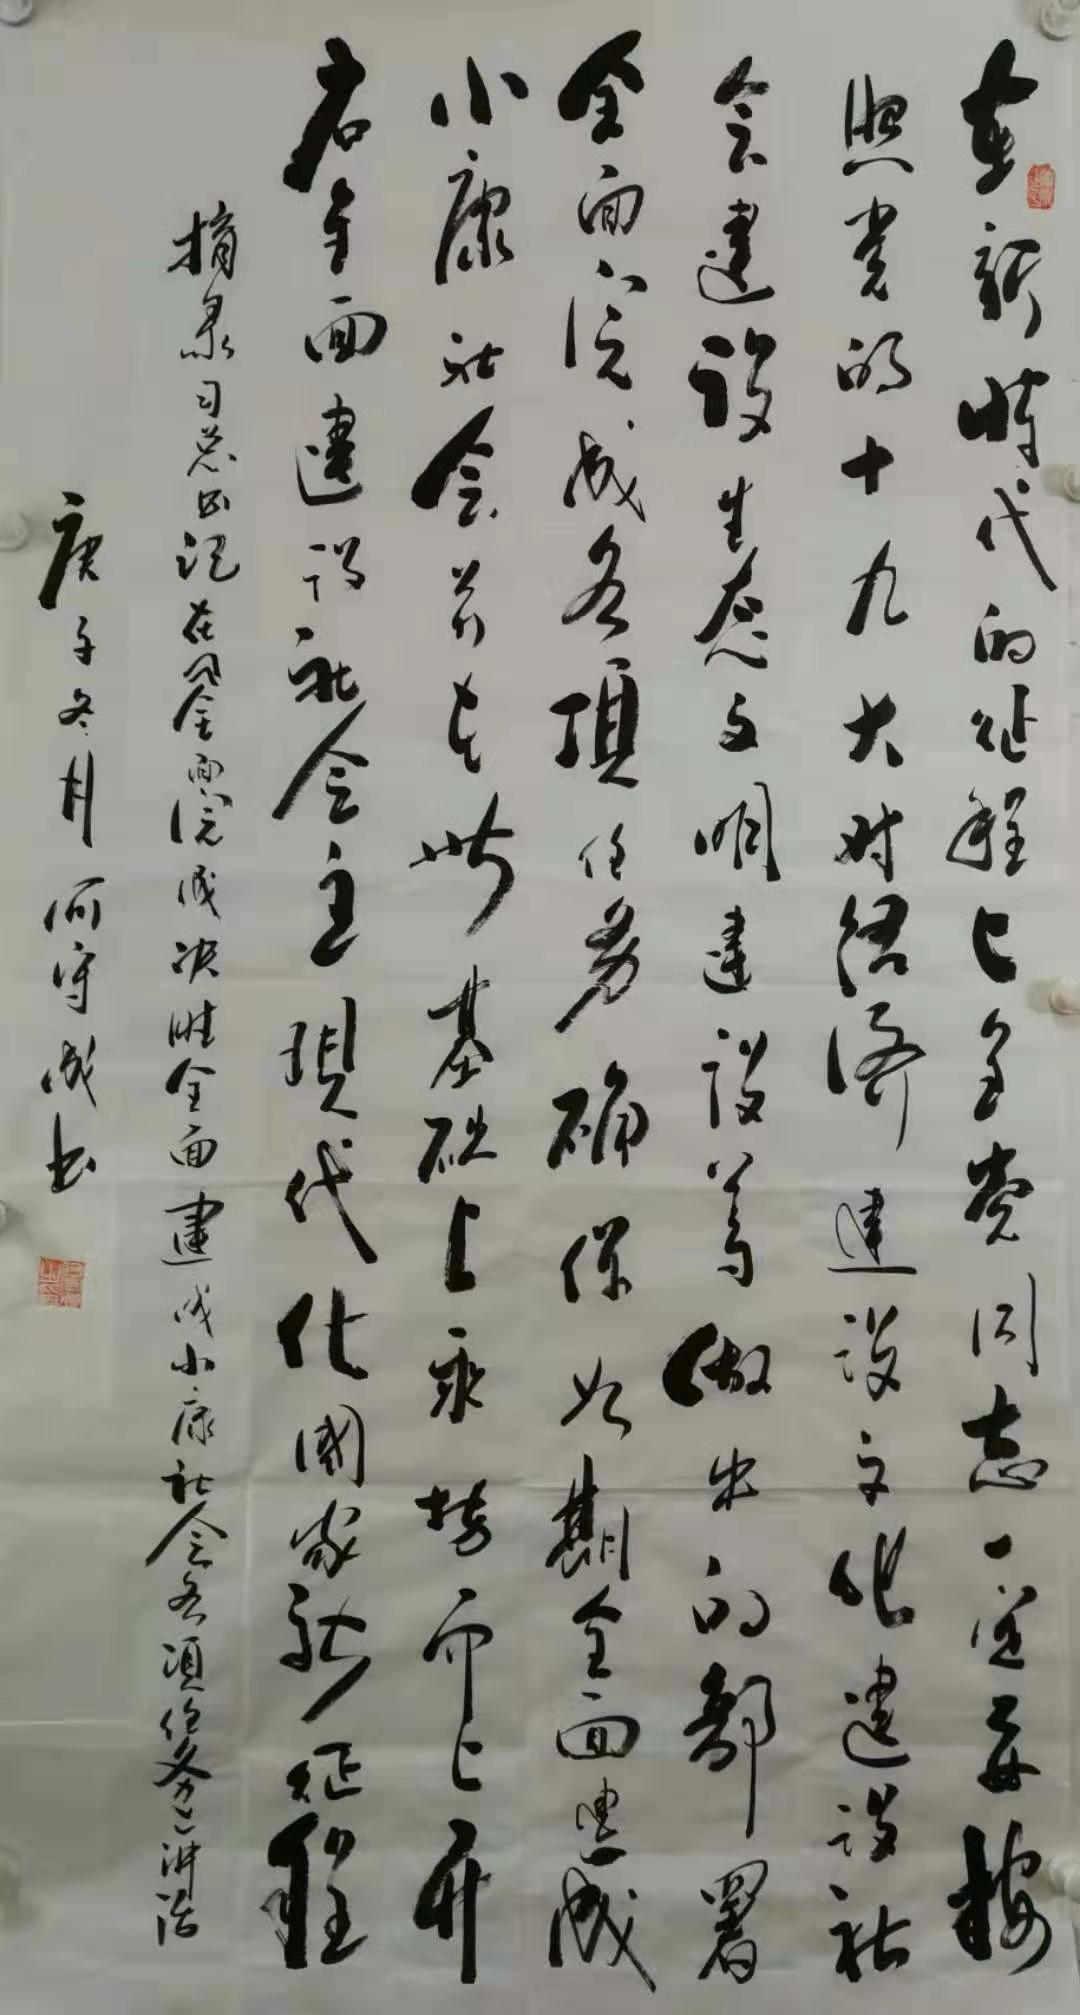 在新時代的征程上全党同志一定要按
照党的十九大对经济建设文化建设社
会建设生态文明建设等做出的部署
全面完成各項任务确保如期全面建成
小康社会并在此基础上乘势而上开
启全面建设社会主現代化國家新征程
摘录习总书记在全面完成决胜全面建成小康社会各項任务上讲话
庚子冬月何守成书